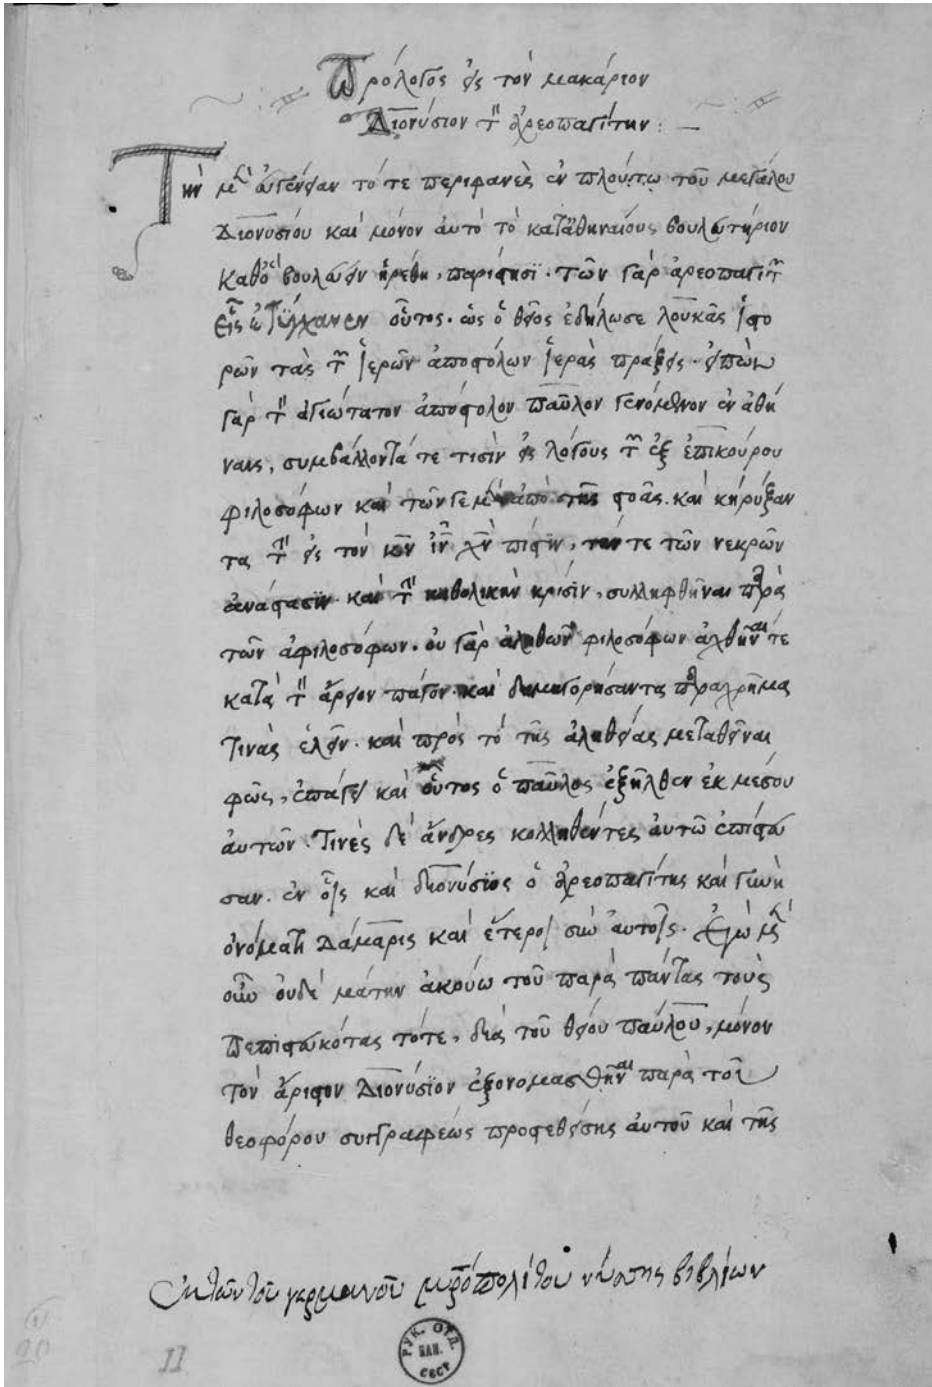 Πρόλογος εἰς τὸν μακάριον
Διονύσιον τὸν Ἀρεοπαγίτην : —
Τὴν μὲν εὐγένειαν τό τε περιφανὲς ἐν πλούτῳ τοῦ μεγάλου
Διονυσίου καὶ μόνον αὐτὸ τὸ κατ' ἀθηναίους βουλευτήριον
καθ' ὃ βουλεύειν ἡρέθη, παρίστησι. τῶν γὰρ ἀρεοπαγιτῶν
εἷς ἐτύγχανεν οὗτος. ὡς ὁ θεῖος ἐδήλωσε λουκᾶς ἱστο
ρῶν τὰς τῶν ἱερῶν ἀποστόλων ἱερὰς πράξεις. εἰπὼν
γὰρ τὸν ἁγιώτατον ἀπόστολον παῦλον γενόμενον ἐν ἀθή
ναις, συμβάλλοντά τε τισὶν εἰς λόγους τῶν ἐξ ἐπικούρου
φιλοσόφων καὶ τῶν γε μὴν ἀπὸ τῆς στοᾶς. καὶ κηρύξαν
τα τὴν εἰς τὸν κν ιν χν πίστιν, τήν τε τῶν νεκρῶν
ἀνάστασιν καὶ τὴν καθολικὴν κρίσιν, συλληφθῆναι παρὰ
τῶν ἀφιλοσόφων. οὐ γὰρ ἀληθῶν φιλοσόφων ἀχθῆναι τε
κατὰ τὸν ἄρειον πάγον. καὶ δημηγορήσαντα παραχρῆμα
τινὰς ἑλεῖν. καὶ πρὸς τὸ τῆς ἀληθείας μεταθεῖναι
φῶς, ἐπάγει καὶ οὗτος ὁ παῦλος ἐξῆλθεν ἐκ μέσου
αὐτῶν. Τινὲς δὲ ἄνδρες κολληθέντες αὐτῷ ἐπίστευ
σαν. ἐν οἷς καὶ διονύσιος ὁ ἀρεοπαγίτης καὶ γυνὴ
ὀνόματι Δάμαρις καὶ ἕτεροι σὺν αὐτοῖς. Ἐγὼ μὲν
οὖν οὐδὲ μάτην ἀκούω τοῦ παρὰ πάντας τοὺς
πεπιστευκότας τότε, διὰ τοῦ θείου παύλου, μόνον
τὸν ἄριστον Διονύσιον ἐξονομασθῆναι παρὰ τοῦ
θεοφόρου συγγραφέως προστεθείσης αὐτοῦ καὶ τῆς
Ἐκ τῶν τοῦ γερμανοῦ μητροπολίτου νύσσης βιβλίων
РУК. ОТД.
БАН.
СССР
II